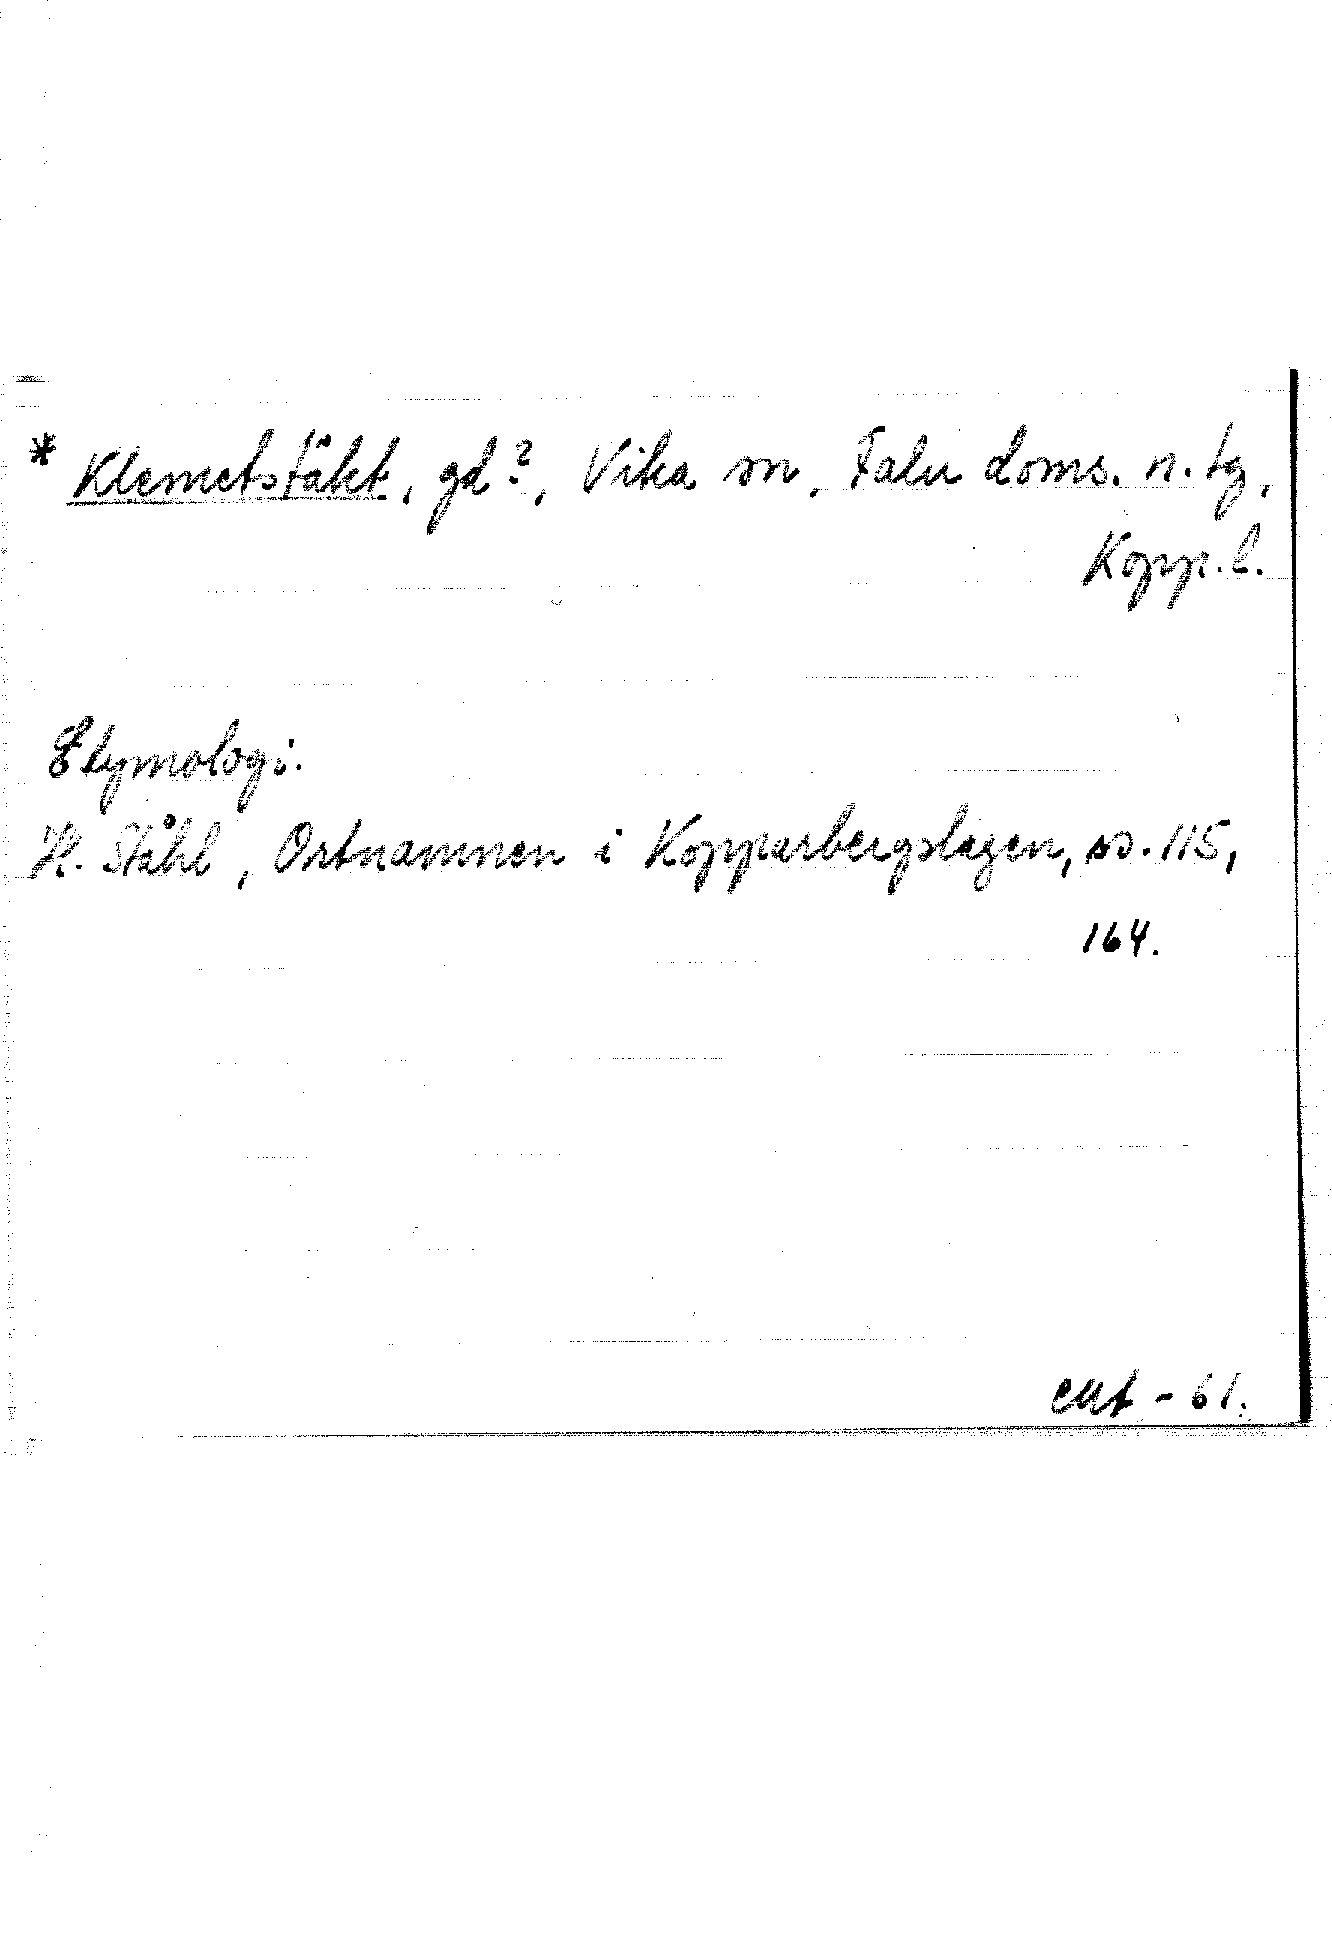 * Klemetstäkt, gd?, Vika sn, Falu doms. n. tg,
Kopp. l.
Etymologi.
H. Ståhl, Ortnamnen i Kopparbergslagen, ss. 115,
164.
EMt - 61.